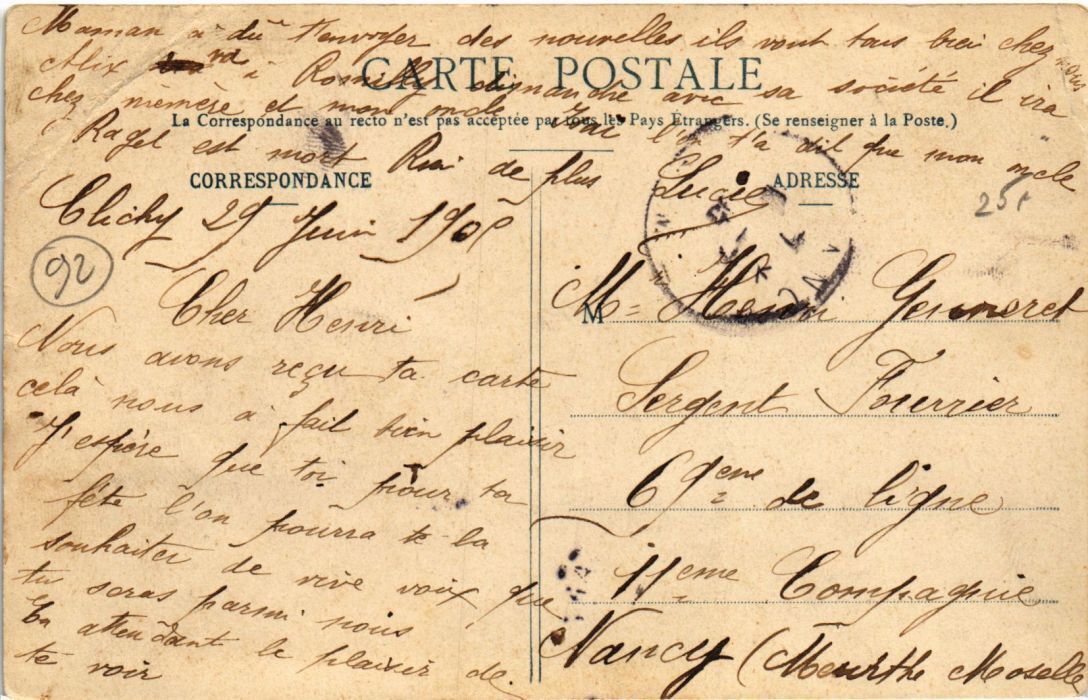 Maman a dû t'envoyer des nouvelles ils vont tous bien chez
Alix va à Romilly dimanche avec sa société il ira
chez mémère et mon oncle l'on t'a dit que mon oncle
Ragel est mort Rien de plus Lucie
CARTE POSTALE
La Correspondance au recto n'est pas acceptée par tous les Pays Etrangers. (Se renseigner à la Poste.)
CORRESPONDANCE
Clichy 29 Juin 190
92
Cher Henri
Nous avons reçu ta carte
celà nous a fait bien plaisir
J'espère que toi pour ta
fête l'on pourra te la
souhaiter de vive voix que
tu seras parmi nous
En attendant le plaisir de
te voir
ADRESSE
25f
M
Mr Henri Genneret
Sergent Fourrier
69eme de ligne
11eme Compagnie
Nancy (Meurthe Moselle